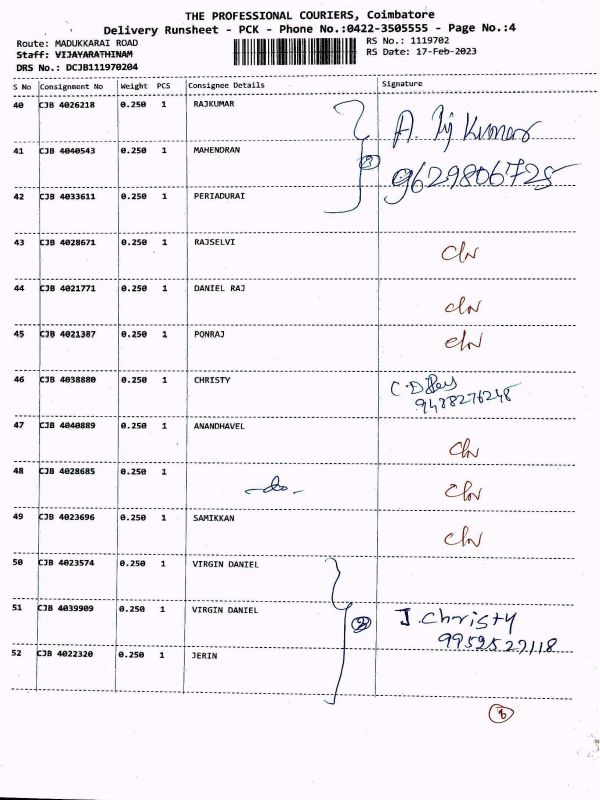 THE PROFESSIONAL COURIERS, Coimbatore
Delivery Runsheet - PCK - Phone No.:0422-3505555 - Page No.:4
Route: MADUKKARAI ROAD RS No.: 1119702
Staff: VIJAYARATHINAM RS Date: 17-Feb-2023
DRS No.: DCJB111970204
S No Consignment No Weight PCS Consignee Details Signature
40 CJB 4026218 0.250 1 RAJKUMAR
A. Kumar
41 CJB 4040543 0.250 1 MAHENDRAN
9629806725
42 CJB 4033611 0.250 1 PERIADURAI
43 CJB 4028671 0.250 1 RAJSELVI
44 CJB 4021771 0.250 1 DANIEL RAJ
45 CJB 4021387 0.250 1 PONRAJ
46 CJB 4038880 0.250 1 CHRISTY
9488276248
47 CJB 4040889 0.250 1 ANANDHAVEL
48 CJB 4028685 0.250 1 -do-
49 CJB 4023696 0.250 1 SAMIKKAN
50 CJB 4023574 0.250 1 VIRGIN DANIEL
51 CJB 4039909 0.250 1 VIRGIN DANIEL J. Christy
9952522118
52 CJB 4022320 0.250 1 JERIN